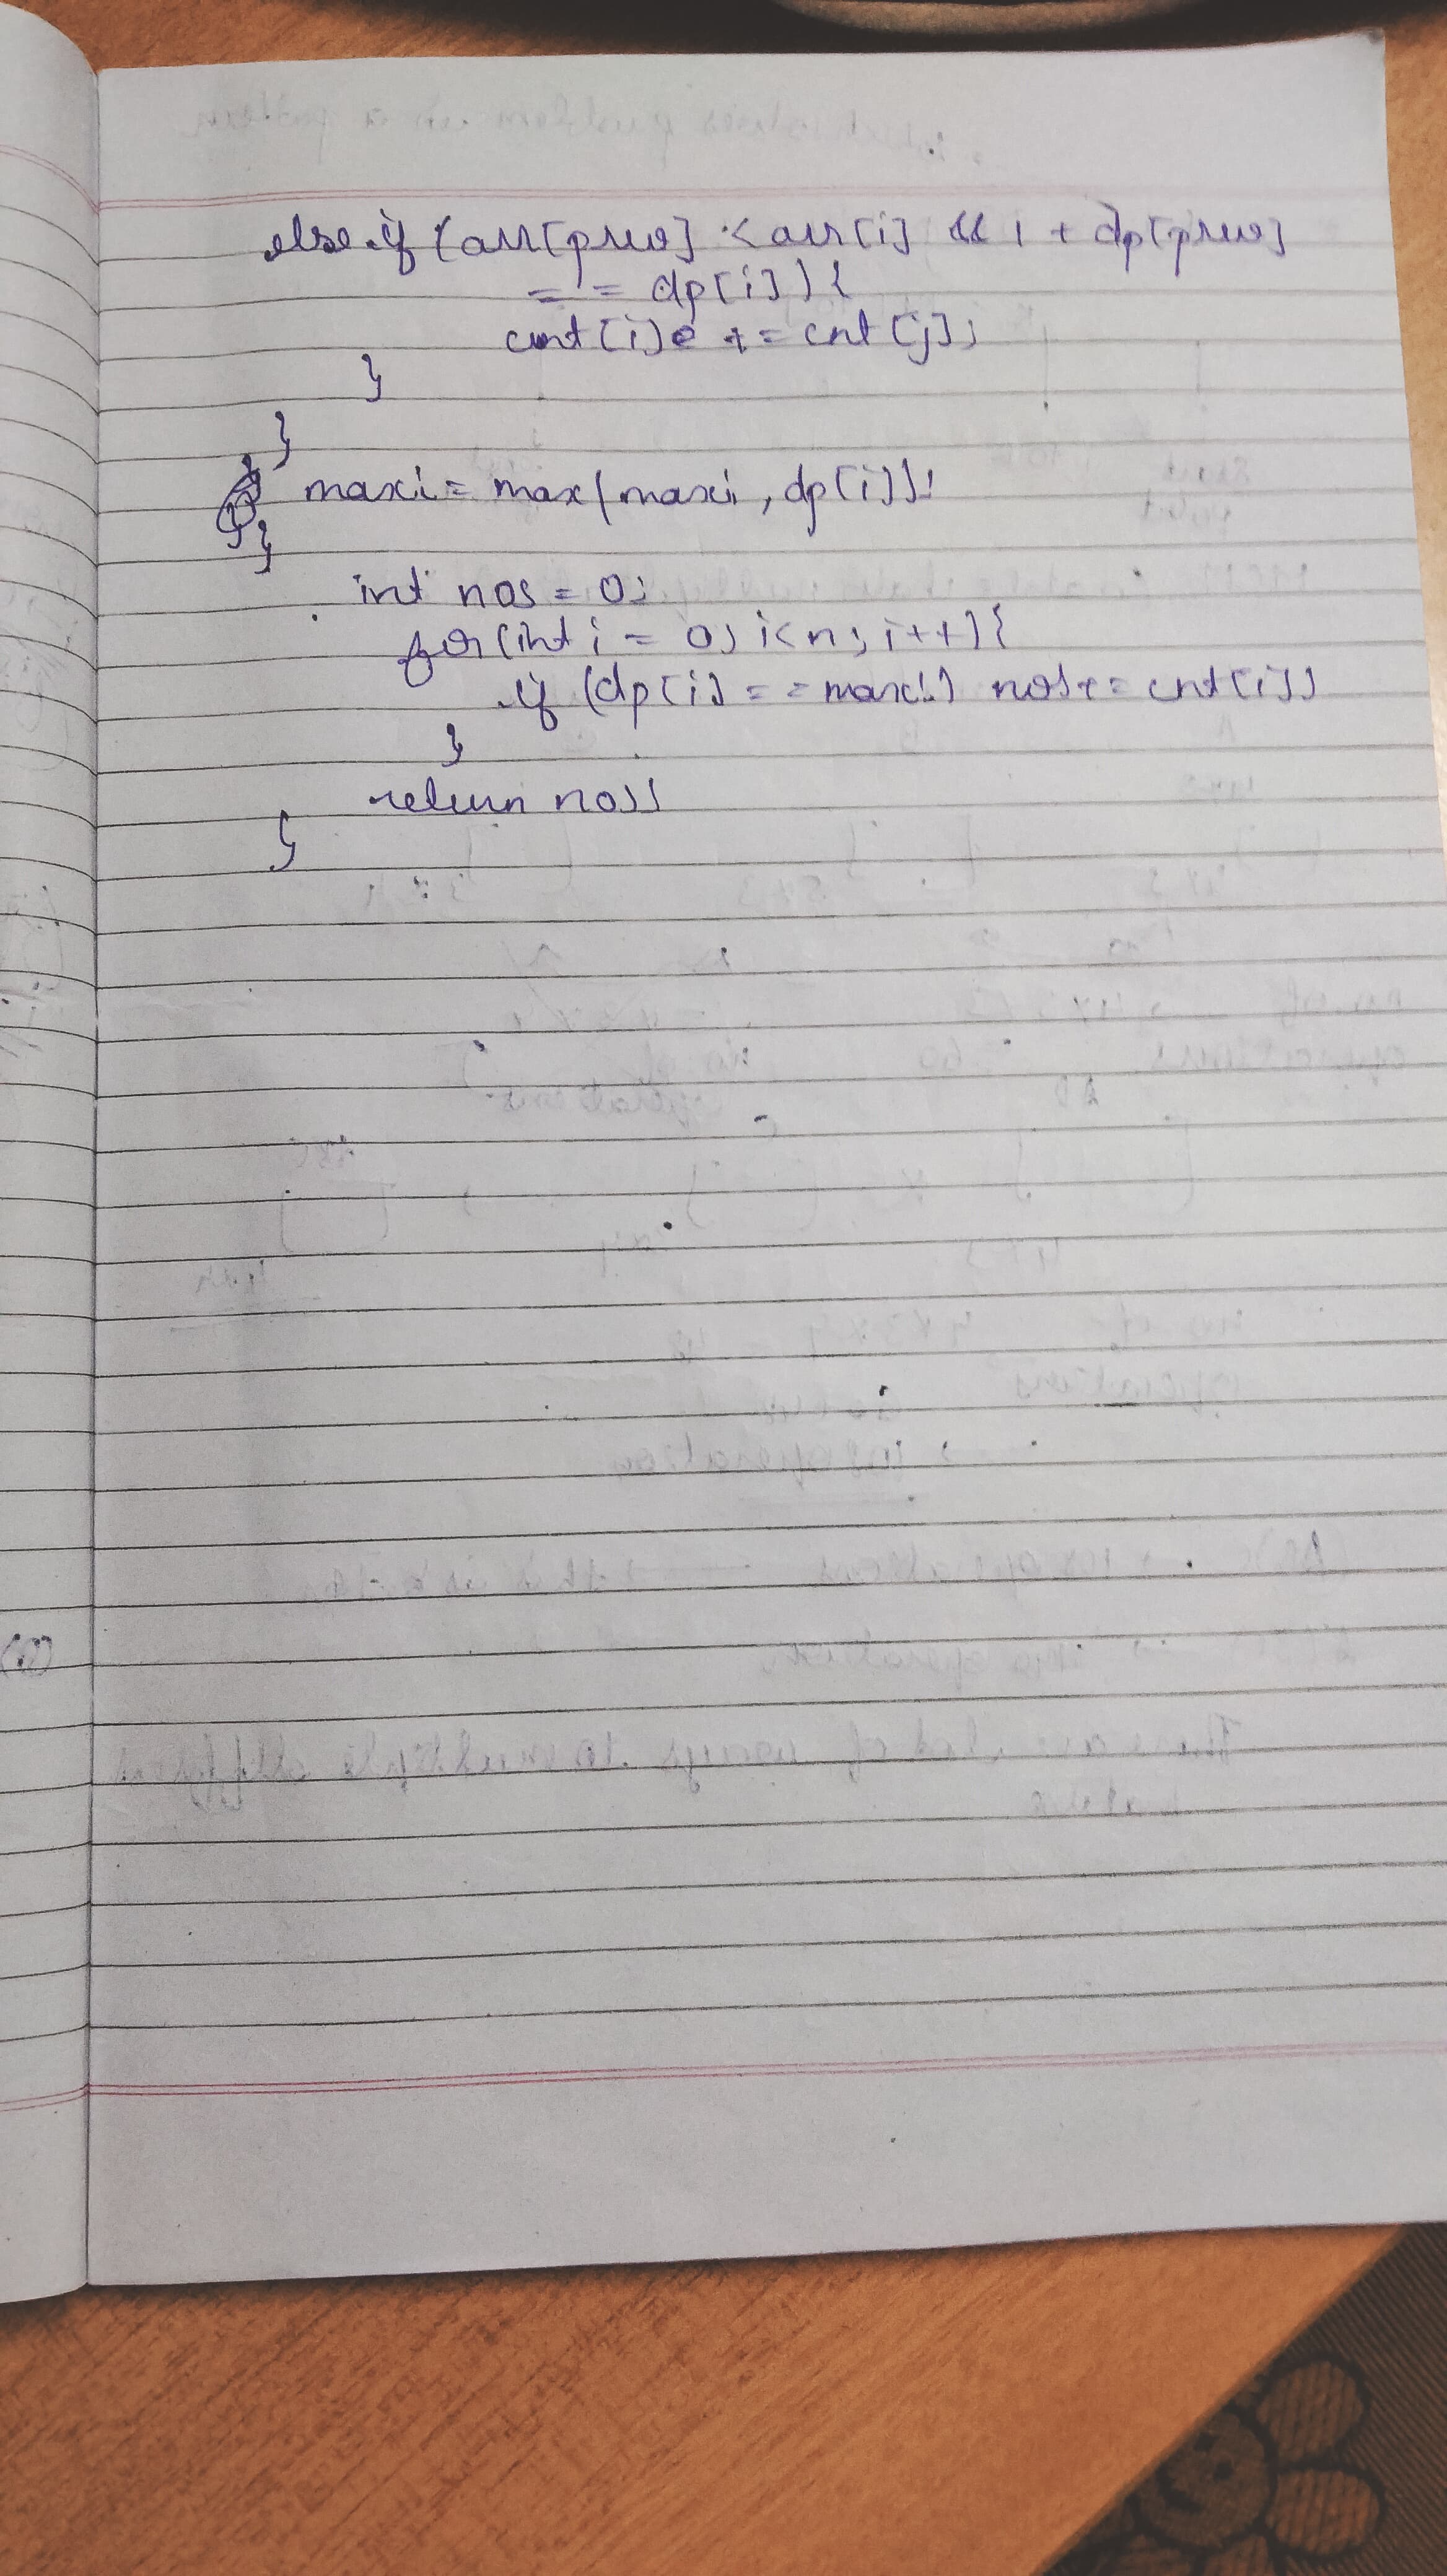 else if (arr[prev] < arr[i] && 1 + dp[prev]
== dp[i]) {
cnt[i] += cnt[j];
}
}
maxi = max(maxi, dp[i]);
}
int nos = 0;
for(int i = 0; i<n; i++){
if (dp[i] == maxi) nos += cnt[i];
}
return nos;
}